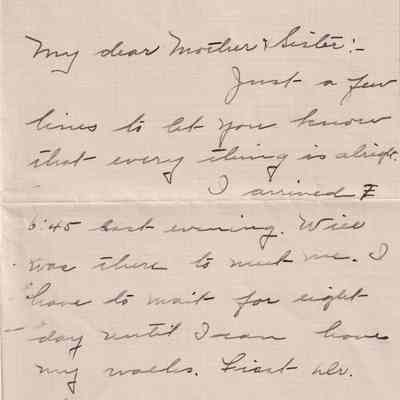 My dear Mother & Sister:-
Just a few
lines to let you know
that every thing is alright.
I arrived
6:45 last evening. Will
was there to meet me. I
have to wait for eight
day until I can have
my walks. First Dr.